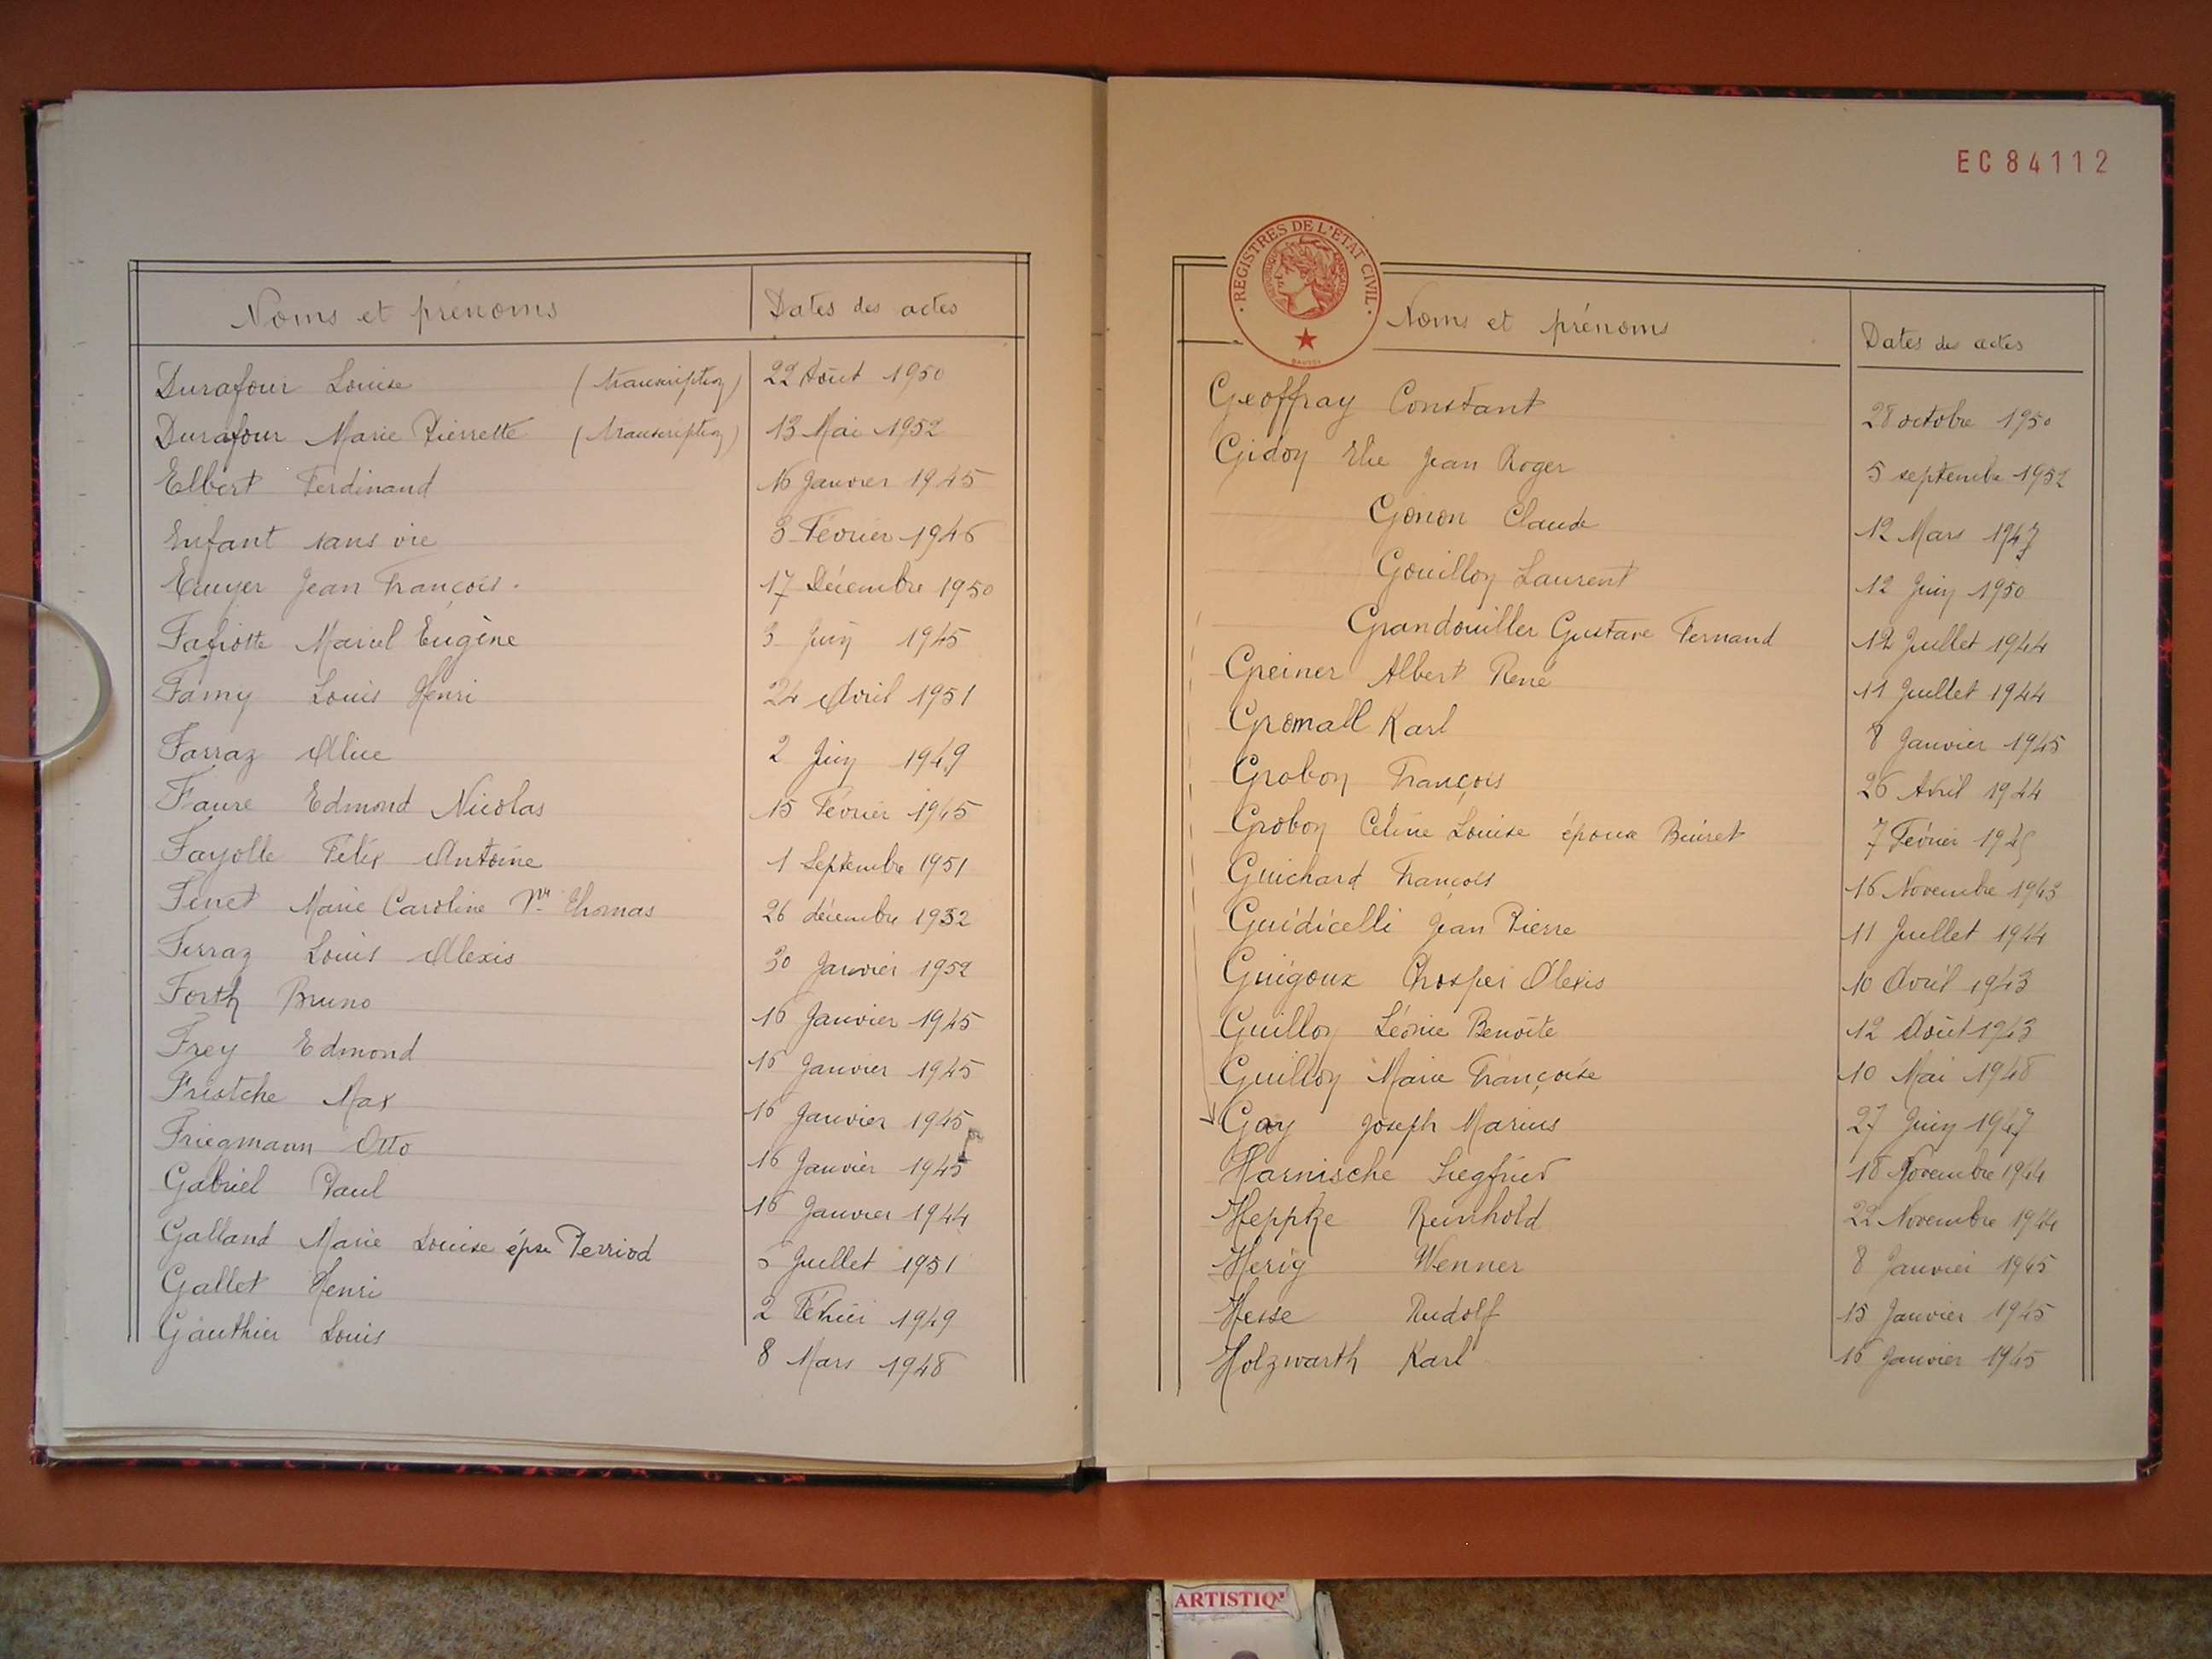 Noms et prénoms Dates des actes
Durafour Louise (transcription) 22 Août 1950
Durafour Marie Pierrette (transcription) 13 Mai 1952
Elbert Ferdinand 16 Janvier 1945
Enfant sans vie 3 Février 1946
Jean François 17 Décembre 1950
Fafiotte Marcel Eugène 3 Juin 1945
Famy Louis Henri 24 Avril 1951
Farraz Alice 2 Juin 1949
Faure Edmond Nicolas 15 Février 1945
Fayolle Félix Antoine 1 Septembre 1951
Finet Marie Caroline Vve Thomas 26 décembre 1952
Ferraz Louis Alexis 30 Janvier 1952
Forth Bruno 16 Janvier 1945
Frey Edmond 16 Janvier 1945
Fristche Max 16 Janvier 1945
Friegmann Otto 16 Janvier 1945
Gabriel Paul 16 Janvier 1944
Galland Marie Louise épse Perriod 5 Juillet 1951
Gallet Henri 2 Février 1949
Gauthier Louis 8 Mars 1948
EC84112
REGISTRES DE L'ETAT CIVIL
Noms et prénoms Dates des actes
Geoffray Constant 28 octobre 1950
Gidon Elie Jean Roger 5 septembre 1952
Gonon Claude 12 Mars 1947
Gouillon Laurent 12 Juin 1950
Grandouiller Gustave Fernand 12 Juillet 1944
Greiner Albert René 11 Juillet 1944
Gromall Karl 8 Janvier 1945
Grobon François 26 Avril 1944
Grobon Céline Louise épouse 7 Février 1945
Guichard François 16 Novembre 1943
Guidicelli Jean Pierre 11 Juillet 1944
Guigoux Prosper Alexis 10 Avril 1943
Guillon Léonie Benoîte 12 Août 1943
Guillon Marie Françoise 10 Mai 1948
Gay Joseph Marius 27 Juin 1947
Harnische Siegfried 18 Novembre 1944
Heppke Reinhold 22 Novembre 1944
Herig Wenner 8 Janvier 1945
Hesse Rudolf 15 Janvier 1945
Holzwarth Karl 16 Janvier 1945
ARTISTIQ